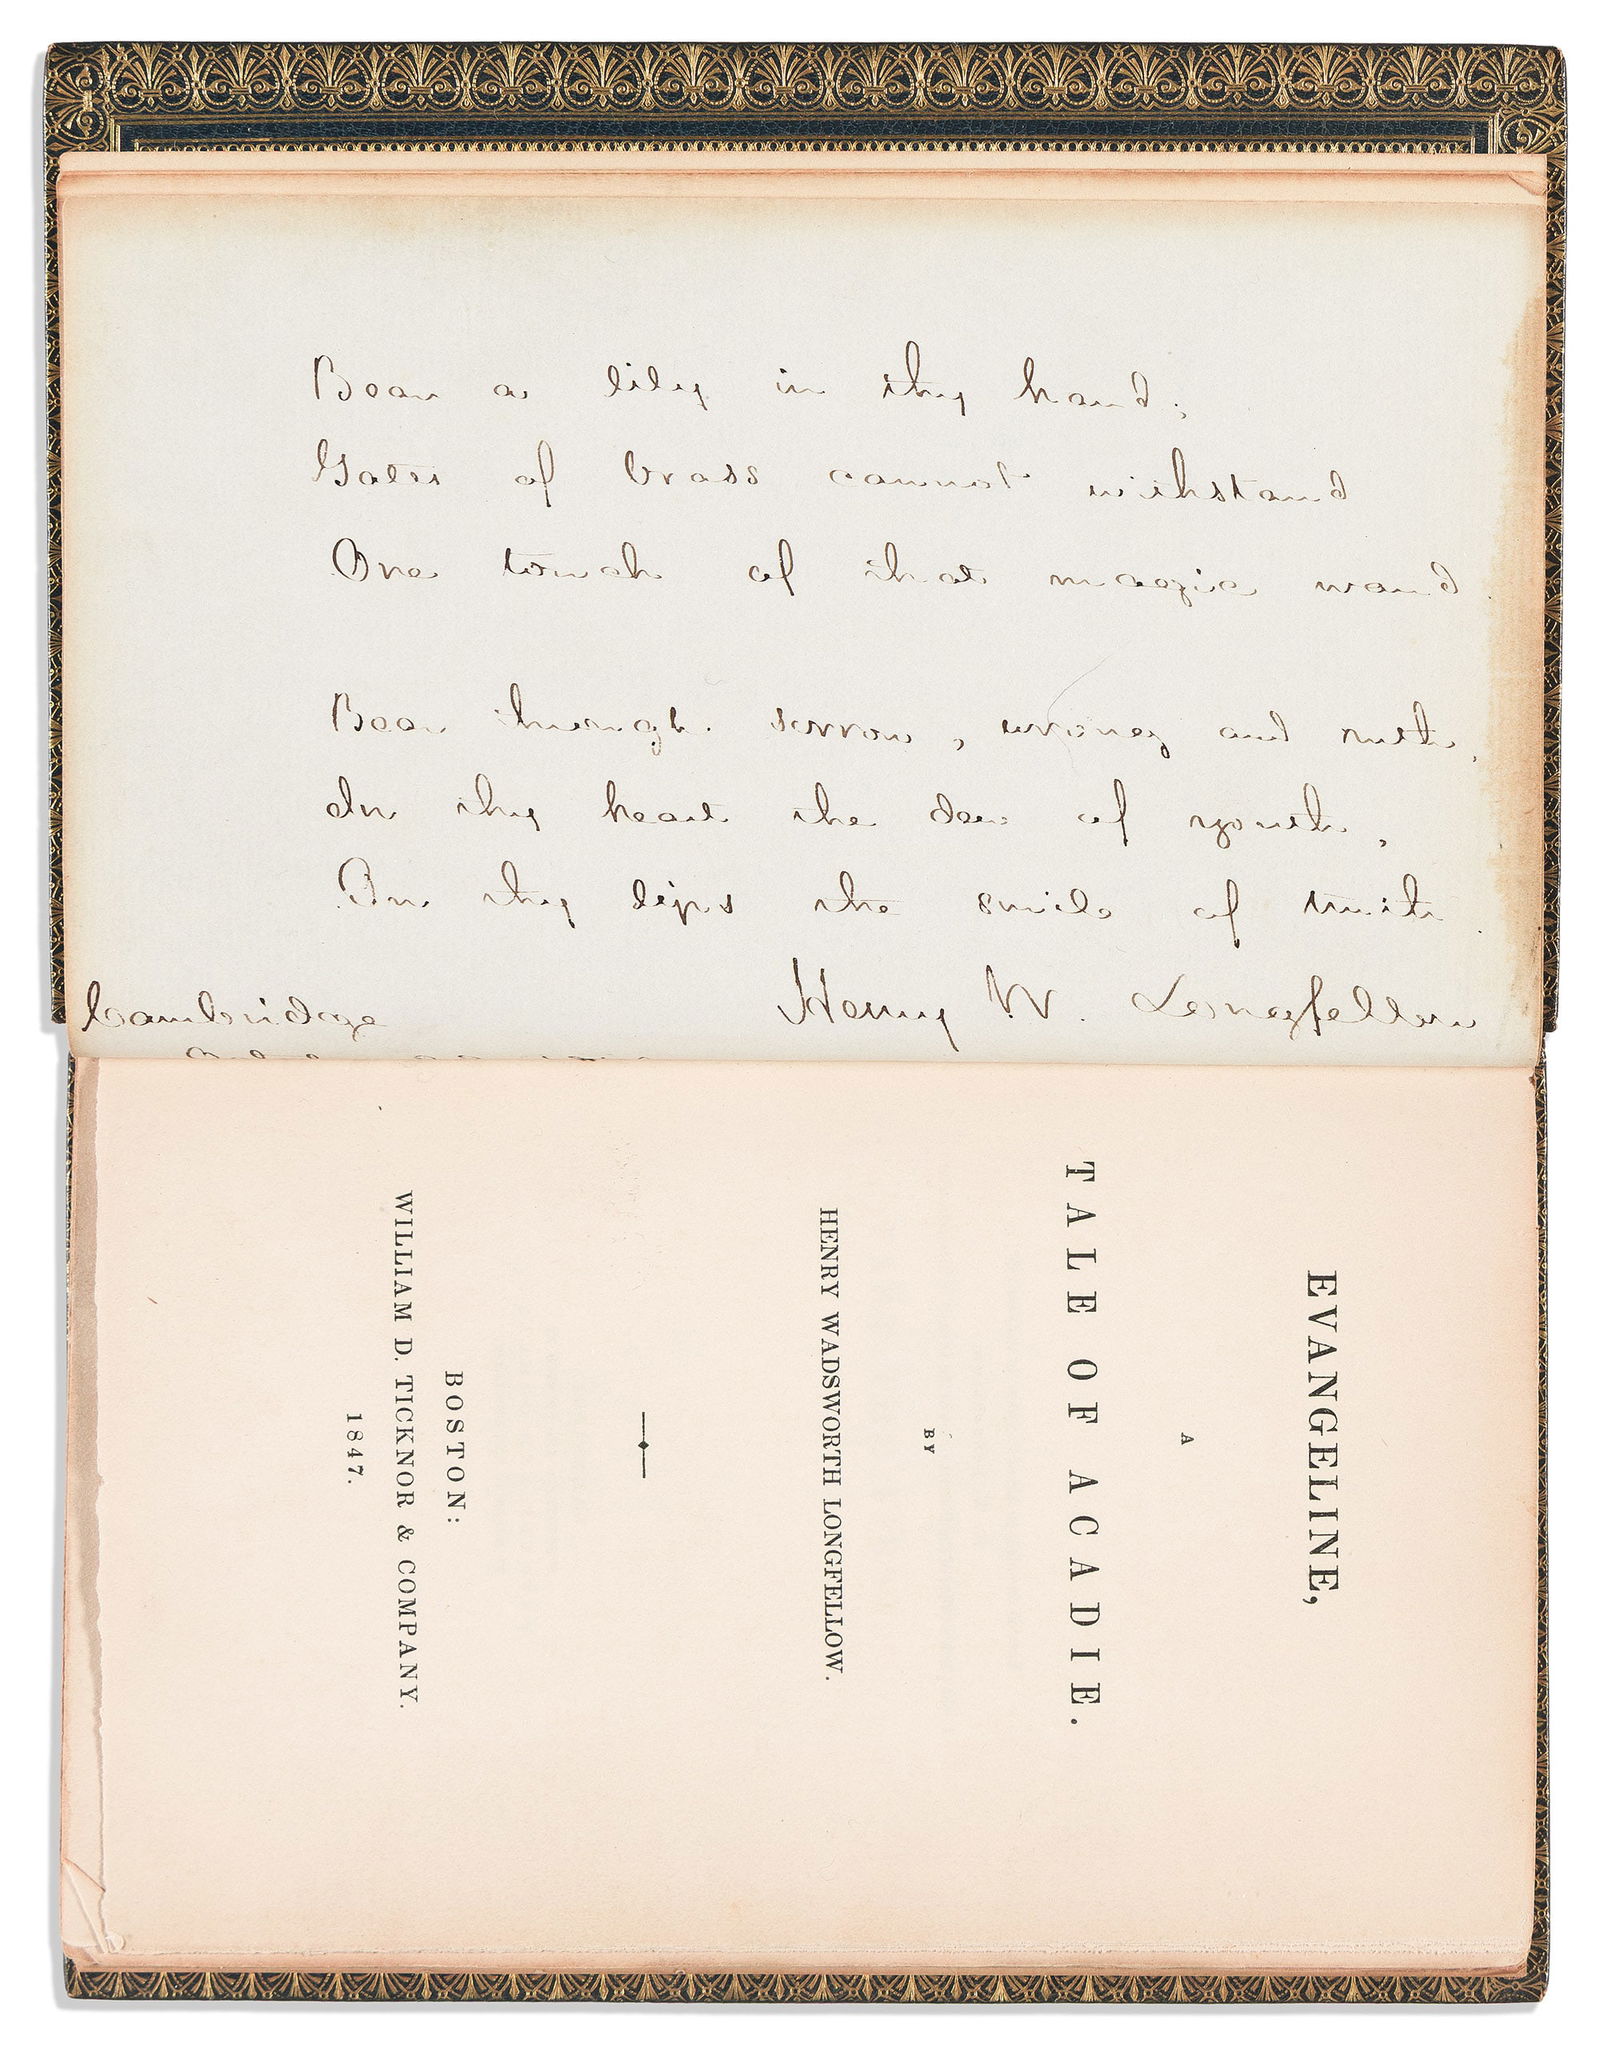 Bear a lily in thy hand;
Gates of brass cannot withstand
One touch of that magic wand.
Bear through sorrow, wrong and ruth,
In thy heart the dew of youth,
On thy lips the smile of truth.
Henry W. Longfellow
Cambridge
EVANGELINE,
A
TALE OF ACADIE.
BY
HENRY WADSWORTH LONGFELLOW.
BOSTON:
WILLIAM D. TICKNOR & COMPANY.
1847.